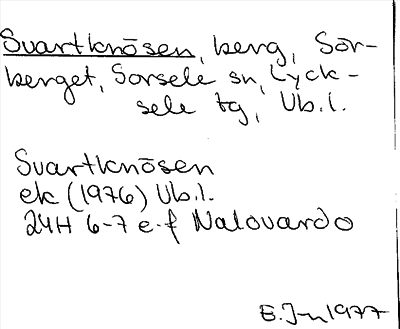 Svartknösen, berg, Sör-
berget, Sorsele sn, Lyck-
sele tg, Vb.l.
Svartknösen
ek (1976) Vb.l.
24H 6-7 e-f Nalovardo
E.J-n 1977